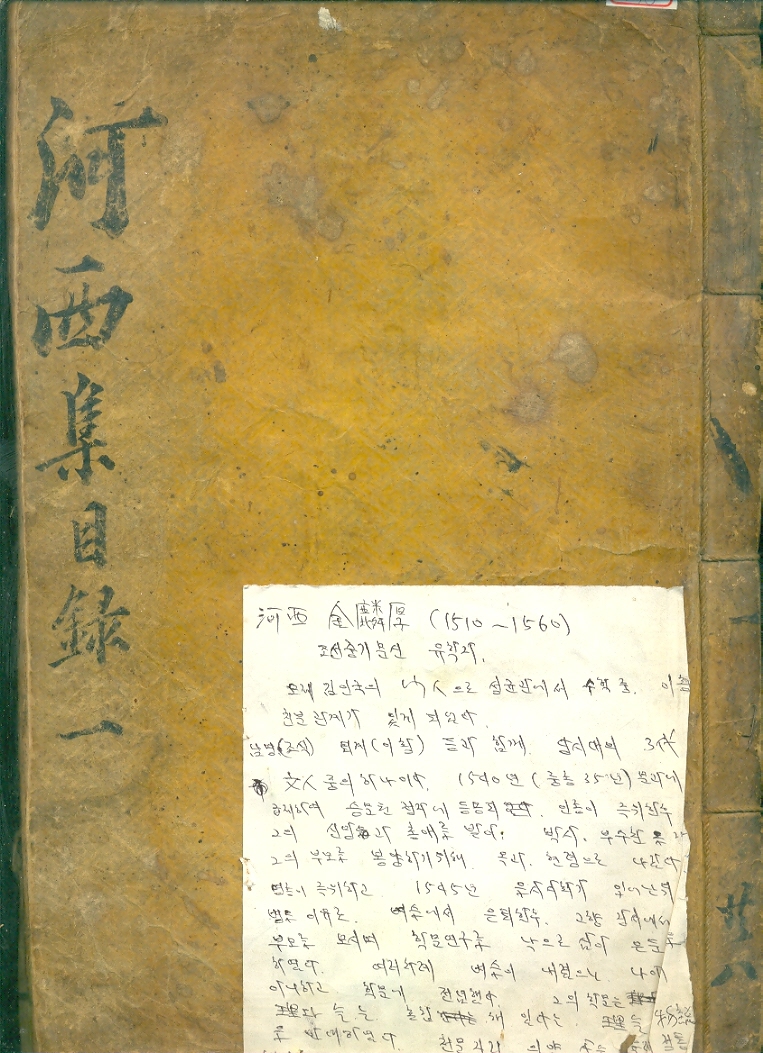 河西集目錄 一
廿八
河西 金麟厚 (1510~1560)
조선중기문신 유학자.
모재 김안국의 으로 성균관에서 수학 후.
친분 관계가 있게 되었다.
남명(조식) 퇴계(이황) 등과 함께. 당시대의 3대
文人 중의 하나이다. 1540년 (중종 35년) 별과에
급제하여 승문원 정자에 등용되 인종이 즉위한후
그의 신망과 총애를 받아. 박사. 부수찬
그의 부모를 봉양하기위해. 옥과. 현령으로 나간다
인종이 즉위하고 1545년 을사사화가 일어난뒤
병을 이유로. 은퇴한후. 고향 장성에서
부모를 모시며 학문연구를 낙으로 삼아
하였다. 여러차례 내렸으나 나아
아니하고 학문에 전념했다. 그의 학문은
는 혼합 해 있다는.
를 반대하였다. 천문 지리 의약